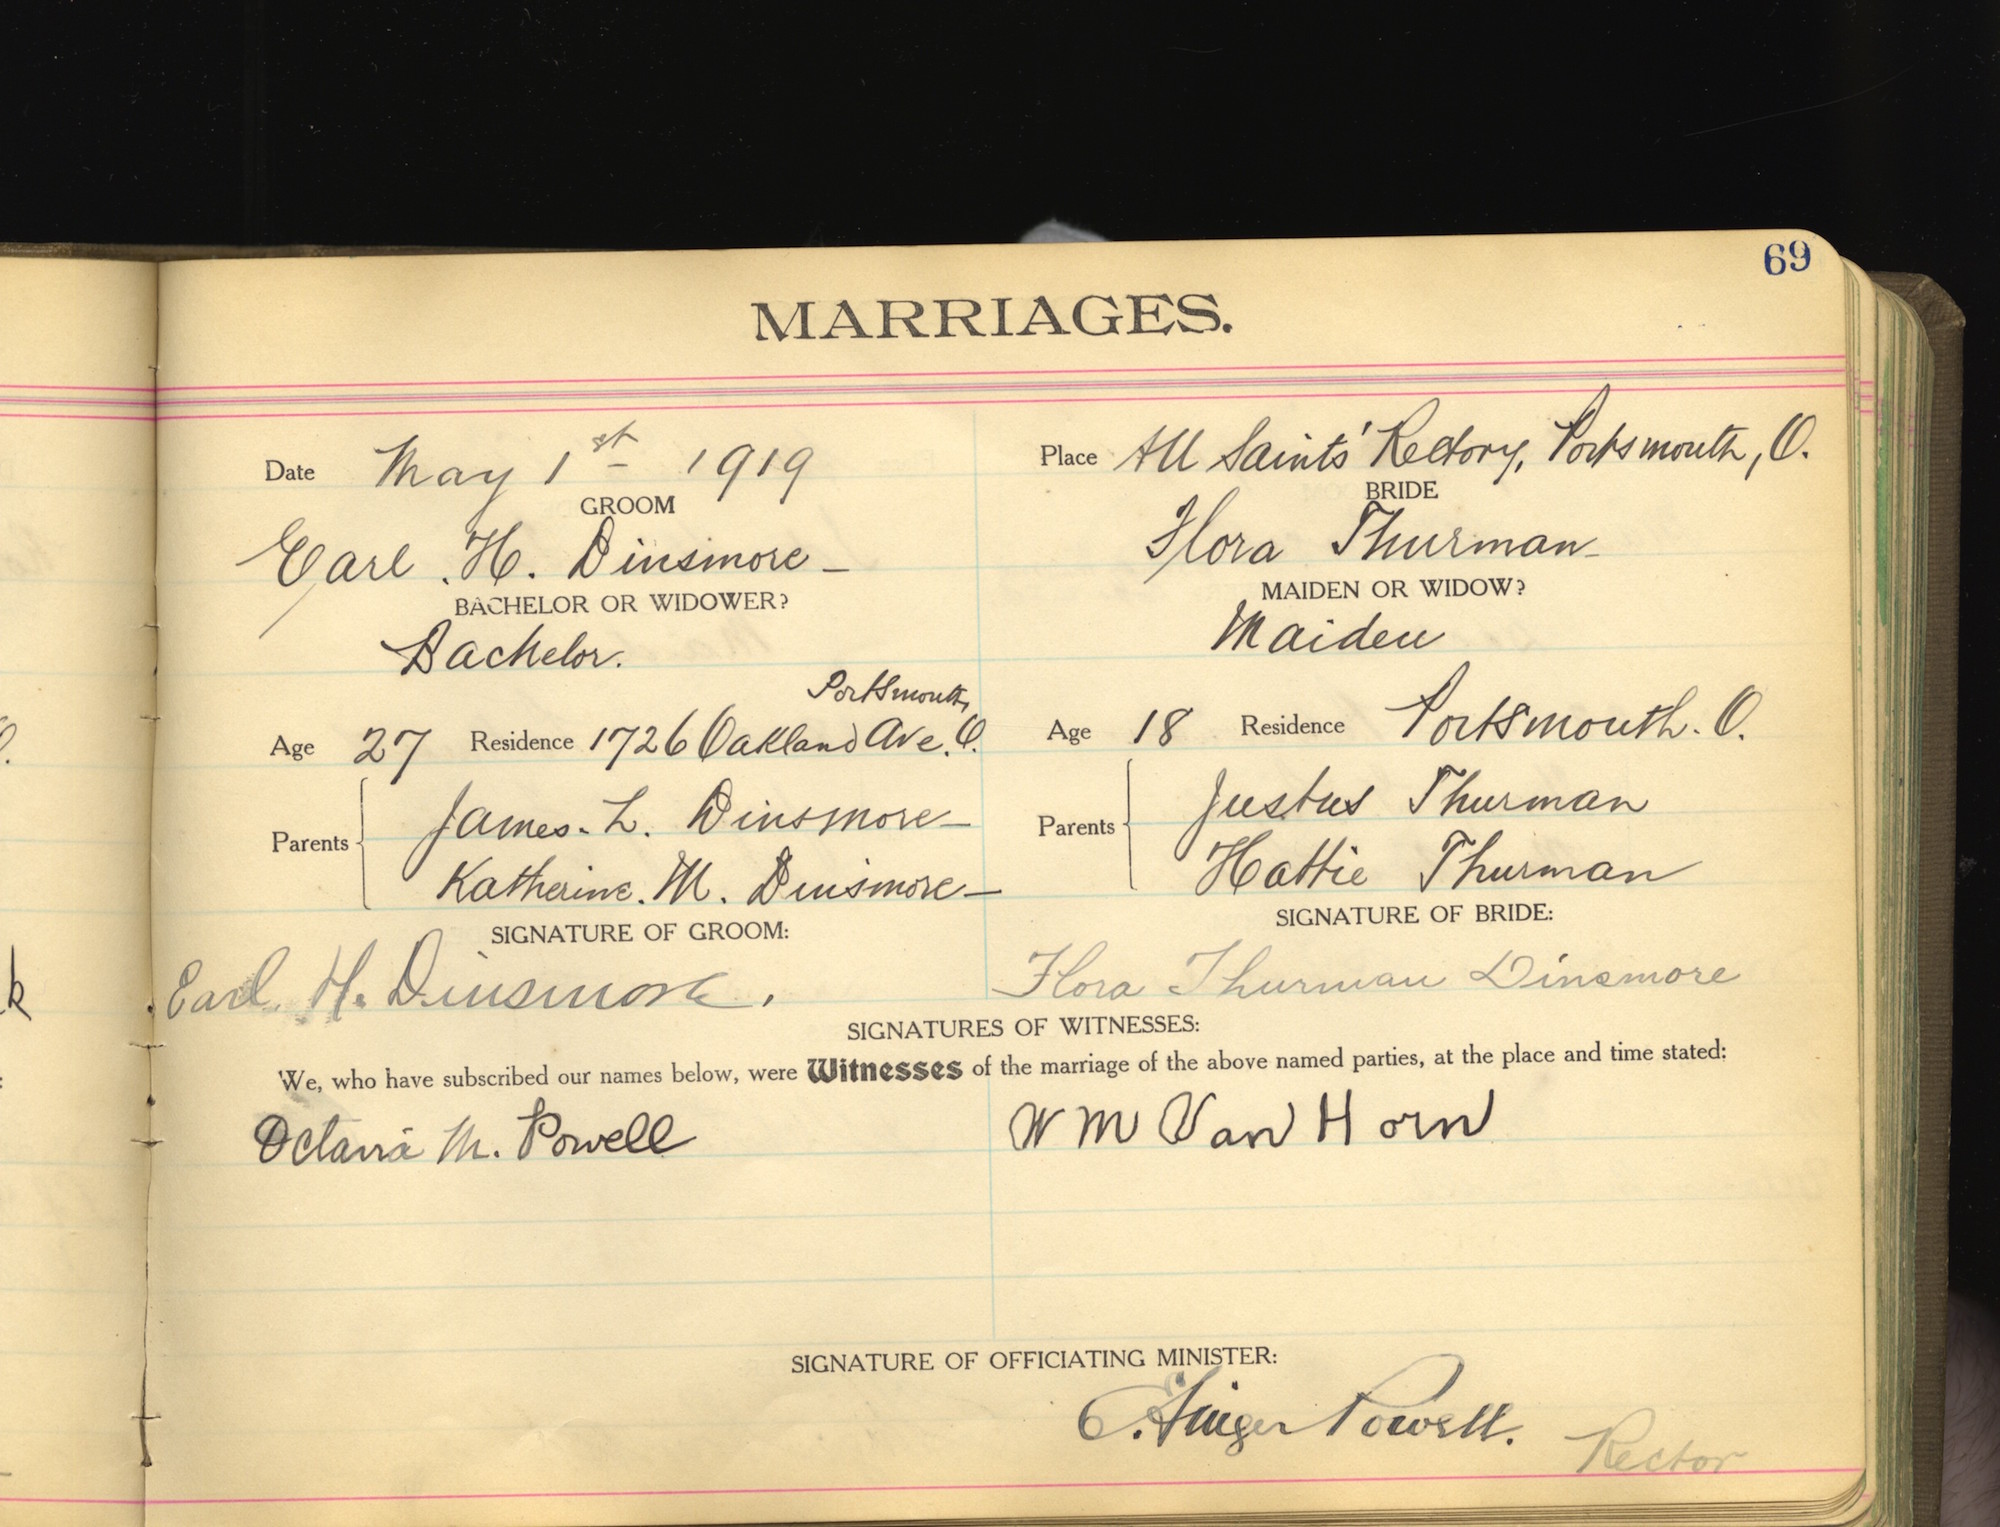 69
MARRIAGES.
Date May 1st 1919
Place All Saints' Rectory, Portsmouth, O.
GROOM
Earl. H. Dinsmore -
BRIDE
Flora Thurman -
BACHELOR OR WIDOWER?
Bachelor.
MAIDEN OR WIDOW?
Maiden
Portsmouth,
Age 27 Residence 1726 Oakland Ave. O.
Age 18 Residence Portsmouth. O.
Parents
James. L. Dinsmore -
Katherine. M. Dinsmore -
Parents
Justus Thurman
Hattie Thurman
SIGNATURE OF GROOM:
Earl. H. Dinsmore.
SIGNATURE OF BRIDE:
Flora Thurman Dinsmore
SIGNATURES OF WITNESSES:
We, who have subscribed our names below, were Witnesses of the marriage of the above named parties, at the place and time stated:
Octavia M. Powell
W M Van Horn
SIGNATURE OF OFFICIATING MINISTER:
E. Ainger Powell.
Rector